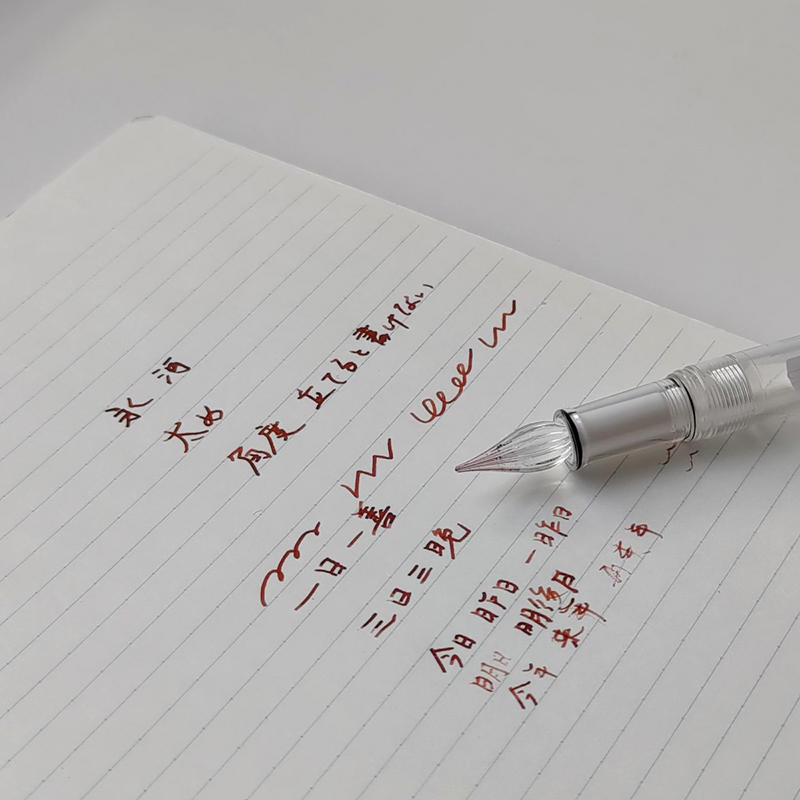 永 酒
太め
角度 立てると書けない
一日一善
三日三晩
今日 昨日 一昨日
明日 明後日
今年 来年